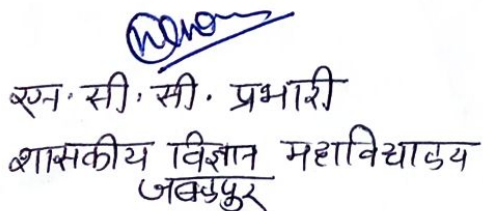 एन. सी. सी. प्रभारी
शासकीय विज्ञान महाविद्यालय
जबलपुर